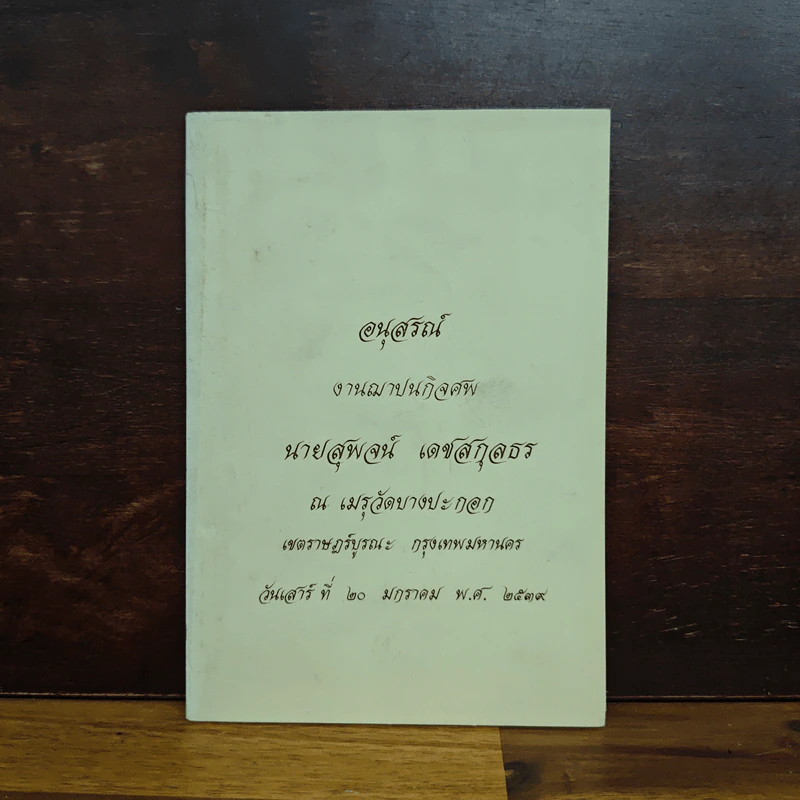 อนุสรณ์
งานฌาปนกิจศพ
นายสุพจน์ เดชสกุลธร
ณ เมรุวัดบางปะกอก
เขตราษฎร์บูรณะ กรุงเทพมหานคร
วันเสาร์ ที่ ๒๐ มกราคม พ.ศ. ๒๕๓๙